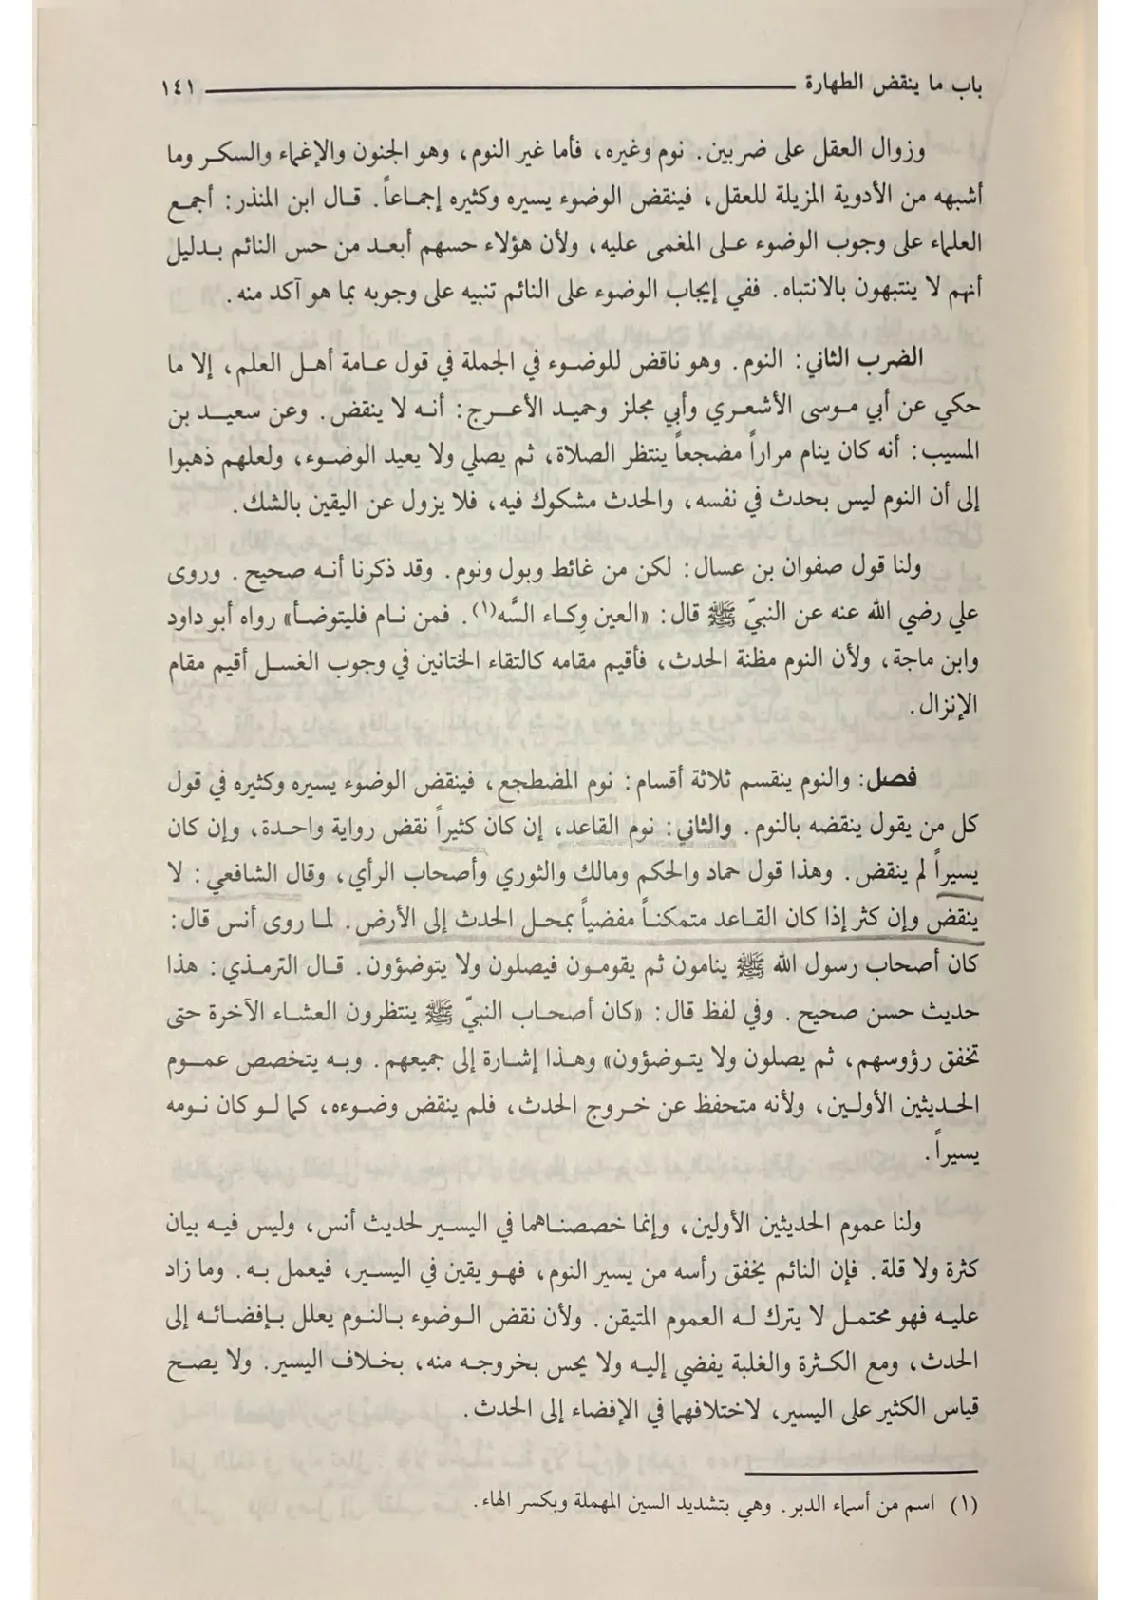 باب ما ينقض الطهارة ١٤١
وزوال العقل على ضربين. نوم وغيره، فأما غير النوم، وهو الجنون والإغماء والسكر وما
أشبهه من الأدوية المزيلة للعقل، فينقض الوضوء يسيره وكثيره إجماعاً. قال ابن المنذر: أجمع
العلماء على وجوب الوضوء على المغمى عليه، ولأن هؤلاء حسهم أبعد من حس النائم بدليل
أنهم لا ينتبهون بالانتباه. ففي إيجاب الوضوء على النائم تنبيه على وجوبه بما هو آكد منه.
الضرب الثاني: النوم. وهو ناقض للوضوء في الجملة في قول عامة أهل العلم، إلا ما
حكي عن أبي موسى الأشعري وأبي مجلز وحميد الأعرج: أنه لا ينقض. وعن سعيد بن
المسيب: أنه كان ينام مراراً مضجعاً ينتظر الصلاة، ثم يصلي ولا يعيد الوضوء، ولعلهم ذهبوا
إلى أن النوم ليس بحدث في نفسه، والحدث مشكوك فيه، فلا يزول عن اليقين بالشك.
ولنا قول صفوان بن عسال: لكن من غائط وبول ونوم. وقد ذكرنا أنه صحيح. وروى
علي رضي الله عنه عن النبيّ ﷺ قال: «العين وِكاء السَّه(١). فمن نام فليتوضأ» رواه أبو داود
وابن ماجة، ولأن النوم مظنة الحدث، فأقيم مقامه كالتقاء الختانين في وجوب الغسل أقيم مقام
الإنزال.
فصل: والنوم ينقسم ثلاثة أقسام: نوم المضطجع، فينقض الوضوء يسيره وكثيره في قول
كل من يقول ينقضه بالنوم. والثاني: نوم القاعد، إن كان كثيراً نقض رواية واحدة، وإن كان
يسيراً لم ينقض. وهذا قول حماد والحكم ومالك والثوري وأصحاب الرأي، وقال الشافعي: لا
ينقض وإن كثر إذا كان القاعد متمكناً مفضياً بمحل الحدث إلى الأرض. لما روى أنس قال:
كان أصحاب رسول الله ﷺ ينامون ثم يقومون فيصلون ولا يتوضؤون. قال الترمذي: هذا
حديث حسن صحيح. وفي لفظ قال: «كان أصحاب النبيّ ﷺ ينتظرون العشاء الآخرة حتى
تخفق رؤوسهم، ثم يصلون ولا يتوضؤون» وهذا إشارة إلى جميعهم. وبه يتخصص عموم
الحديثين الأولين، ولأنه متحفظ عن خروج الحدث، فلم ينقض وضوءه، كما لو كان نومه
يسيراً.
ولنا عموم الحديثين الأولين، وإنما خصصناهما في اليسير لحديث أنس، وليس فيه بيان
كثرة ولا قلة. فإن النائم يخفق رأسه من يسير النوم، فهو يقين في اليسير، فيعمل به. وما زاد
عليه فهو محتمل لا يترك له العموم المتيقن. ولأن نقض الوضوء بالنوم يعلل بإفضائه إلى
الحدث، ومع الكثرة والغلبة يفضي إليه ولا يحس بخروجه منه، بخلاف اليسير. ولا يصح
قياس الكثير على اليسير، لاختلافهما في الإفضاء إلى الحدث.
(١) اسم من أسماء الدبر. وهي بتشديد السين المهملة وبكسر الهاء.